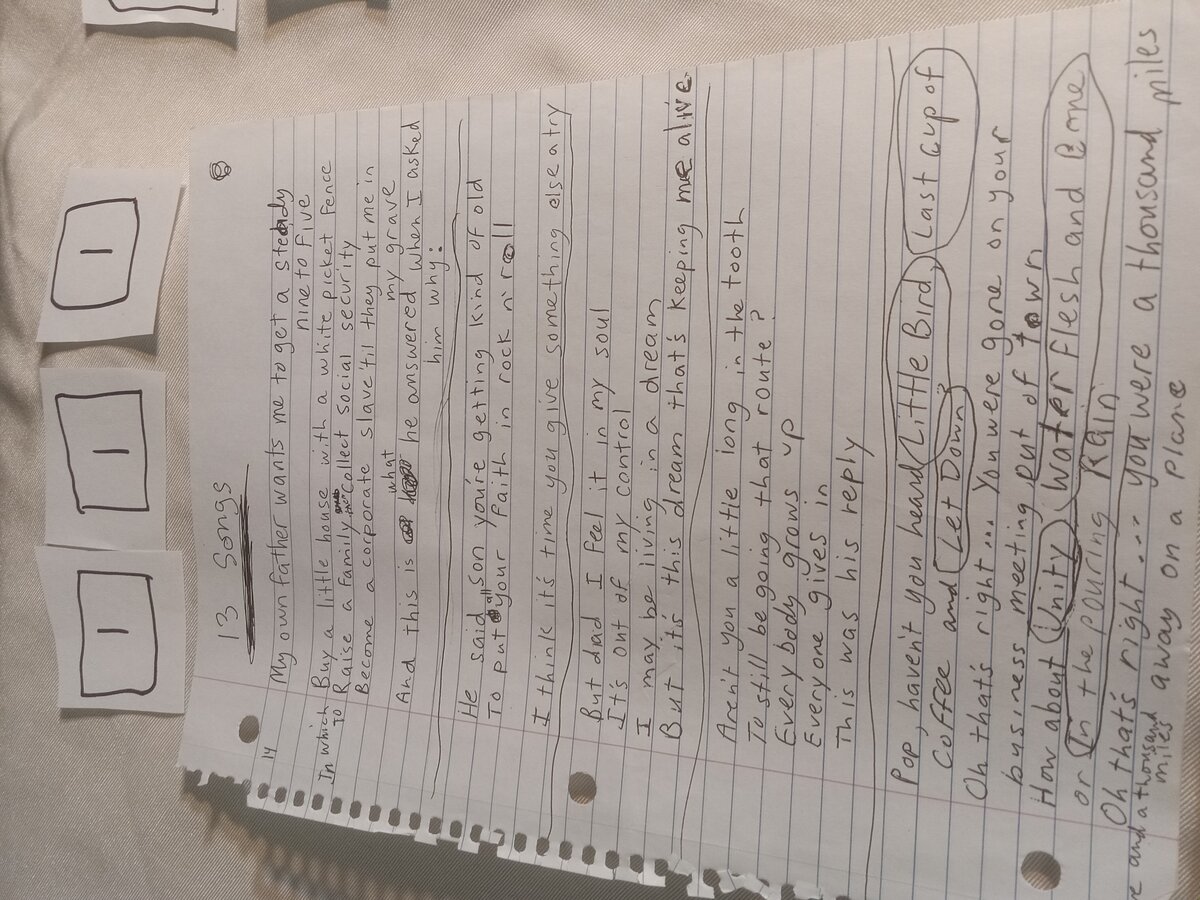 1
1
1
13 Songs
B
14
My own father wants me to get a steady
nine to five
In which Buy a little house with a white picket fence
To Raise a family and collect social security
Become a corporate slave 'til they put me in
my grave
And this is what he answered when I asked
him why:
He said son you're getting kind of old
To put all your faith in rock n' roll
I think it's time you give something else a try
But dad I feel it in my soul
It's out of my control
I may be living in a dream
But it's this dream that's keeping me alive
Aren't you a little long in the tooth
To still be going that route?
Everybody grows up
Everyone gives in
This was his reply
Pop, haven't you heard Little Bird, Last cup of
coffee and Let Down?
Oh that's right... You were gone on your
business meeting out of town
How about Unity, Water Flesh and Bone
or In the pouring Rain
Oh that's right.... you were a thousand miles
and a thousand miles away on a plane